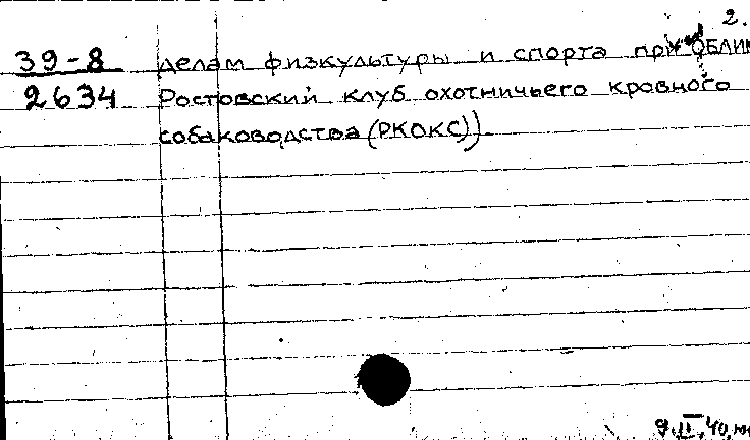 2.
39-8 делам физкультуры и спорта при
2634 Ростовский клуб охотничьего кровного
собаководства (РКОКС)).
9.II.40